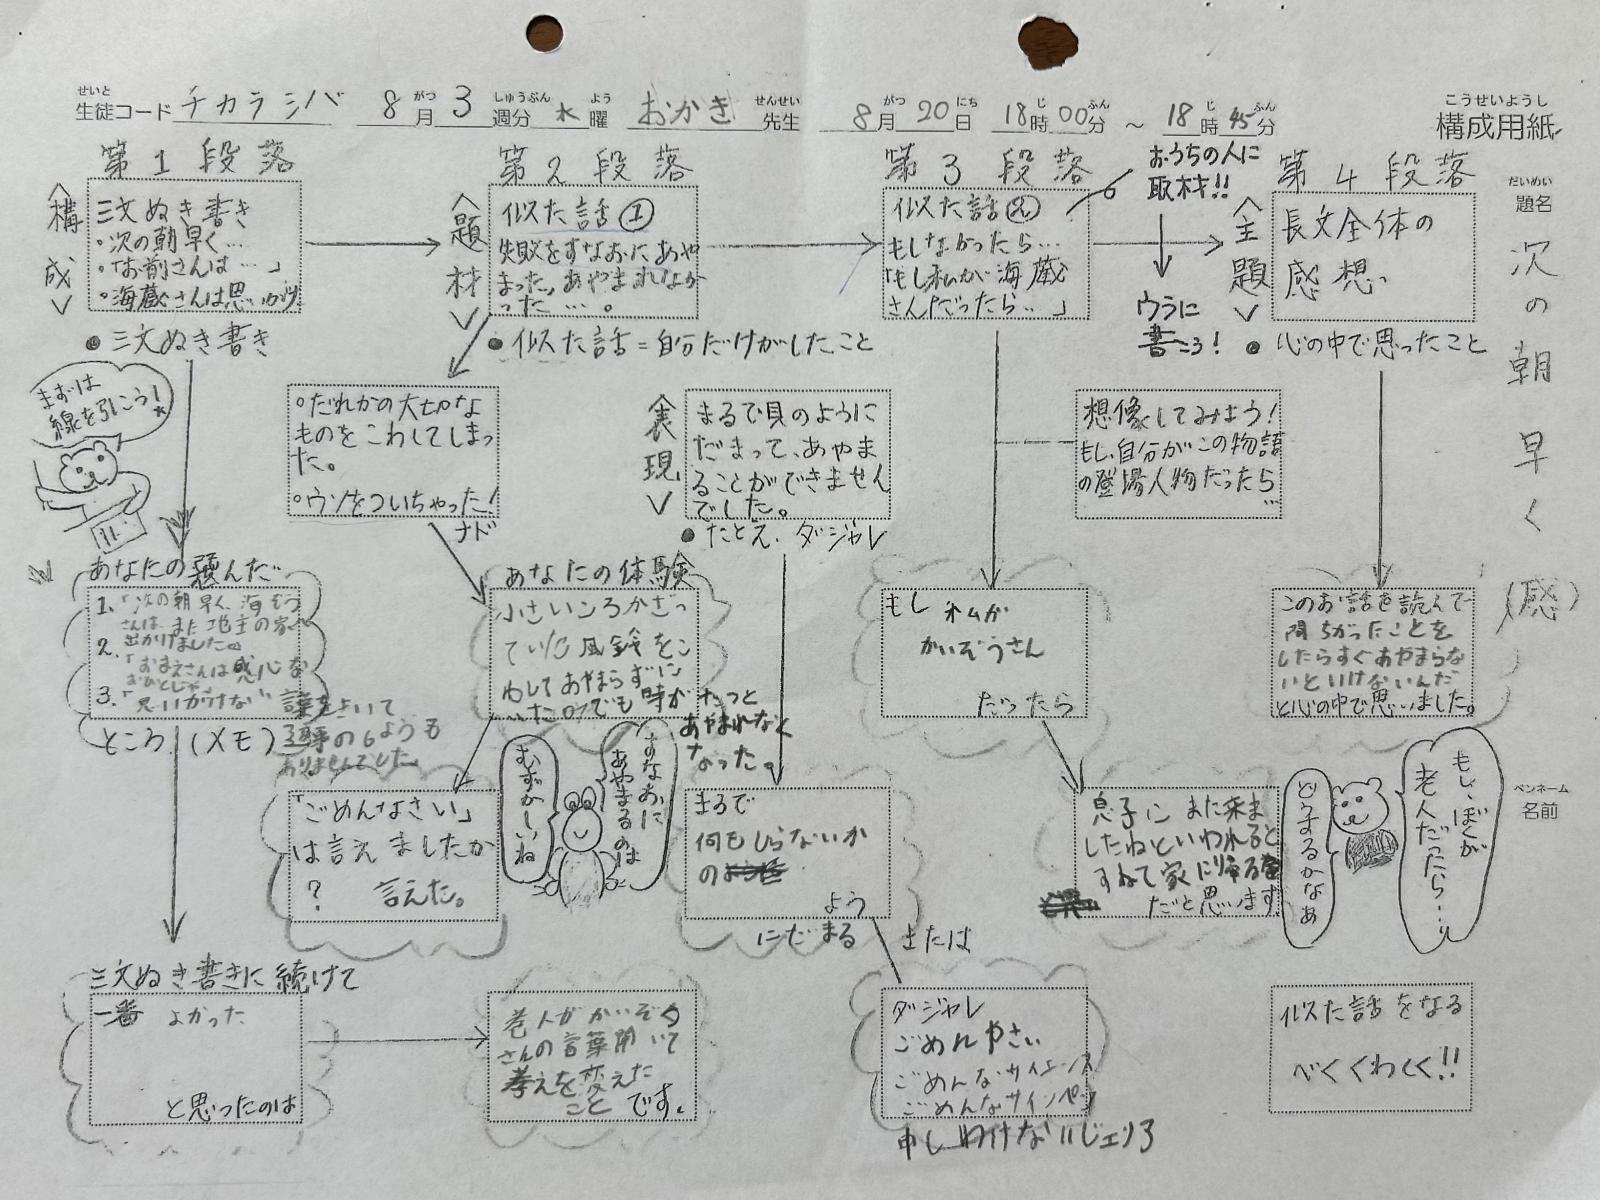 せいと
生徒コード チカラシバ 8月 3週分 水曜 おかき 先生 8月20日 18時00分 ～ 18時45分
がつ しゅうぶん よう せんせい がつ にち じ ふん じ ふん
こうせいようし
構成用紙
だいめい
題名
次の朝早く (感)
ペンネーム
名前
第1段落
〈構成〉
三文ぬき書き
・次の朝早く…
・「お前さんは…」
・海蔵さんは思いがけ
● 三文ぬき書き
まずは
線を引こう!
あなたの選んだ
1.「次の朝早く、海ぞう
さんは、また地主の家へ
2. 出かけました。
「おまえさんは感心な
おひとじゃ。
3.「思いがけない 言葉をきいて
返事のしようも
ありませんでした。
ところ (メモ)
三文ぬき書きに続けて
一番 よかった
と思ったのは
老人がかいぞう
さんの言葉聞いて
考えを変えた
こと です。
第2段落
〈題材〉
似た話①
失敗をすなおにあや
まった。あやまれなか
った…。
● 似た話=自分だけがしたこと
・だれかの大切な
ものをこわしてしまっ
た。
・ウソをついちゃった!
ナド
あなたの体験
小さいころかざっ
ていた風鈴をこ
わしてあやまらずに
いたのでも時が たつと
あやまれなく
なった。
「ごめんなさい」
は言えましたか
? 言えた。
すなおに
あやまるのは
むずかしいね
〈表現〉
まるで貝のように
だまって、あやま
ることができません
でした。
● たとえ・ダジャレ
まるで
何もしらないか
の
よう
にだまる
または
ダジャレ
ごめんやさい
ごめんなサイエンス
ごめんなサインペン
申しわけないじェリ3
第3段落
似た話②
もしなかったら…
「もし私が海蔵
さんだったら…」
おうちの人に
取材!!
ウラに
書こう!
想像してみよう!
もし、自分がこの物語
の登場人物だったら
…
もし 私が
かいぞうさん
だったら
息子にまた来ま
したねといわれると
すねて家に帰る
だと思います。
第4段落
〈主題〉
長文全体の
感想
● 心の中で思ったこと
このお話を読んで
間ちがったことを
したらすぐあやまらな
いといけないんだ
と心の中で思いました。
もし、ぼくが
老人だったら…
どうするかなぁ
似た話をなる
べくくわしく!!